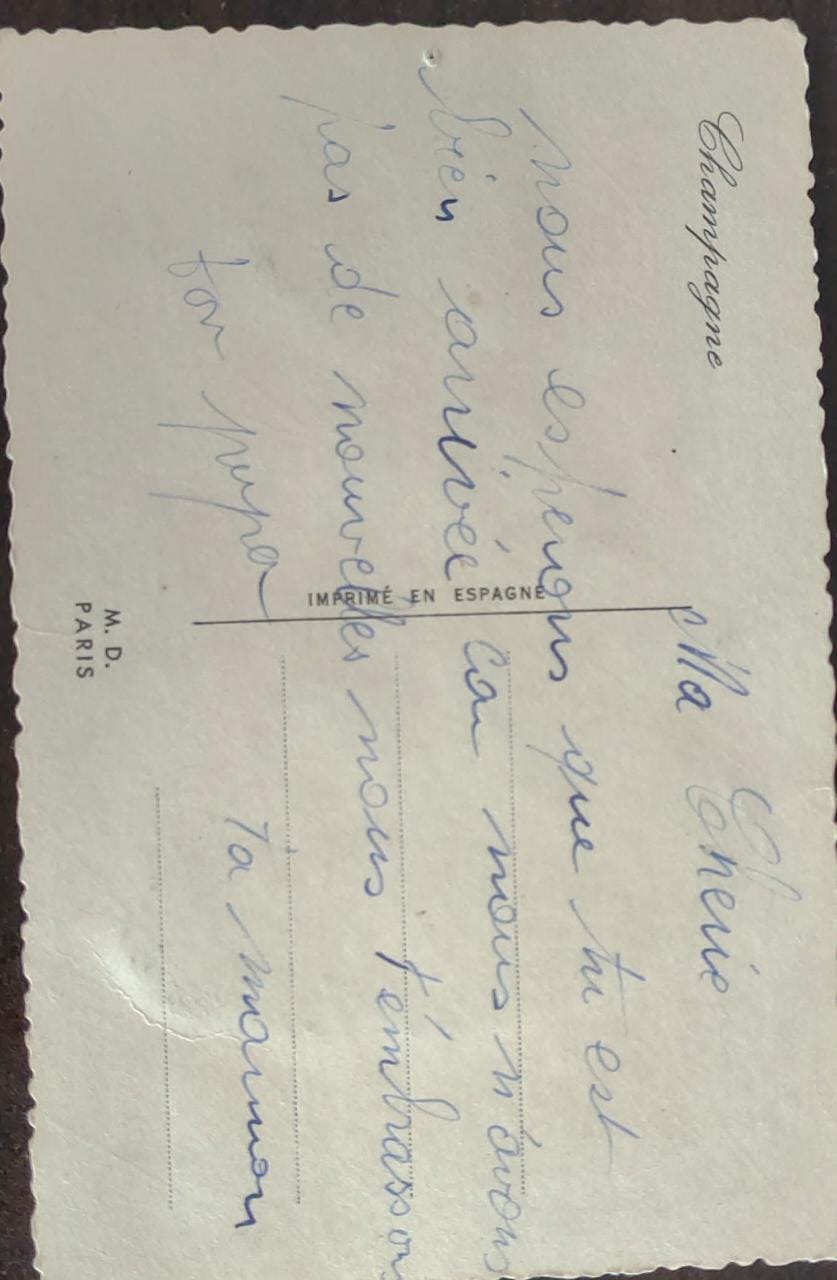 Champagne
Ma Cherie
nous espérons que tu est
bien arrivée Car nous n'avons
pas de nouvelles nous t'embrassons
ton papa Ta maman
IMPRIMÉ EN ESPAGNE
M. D.
PARIS